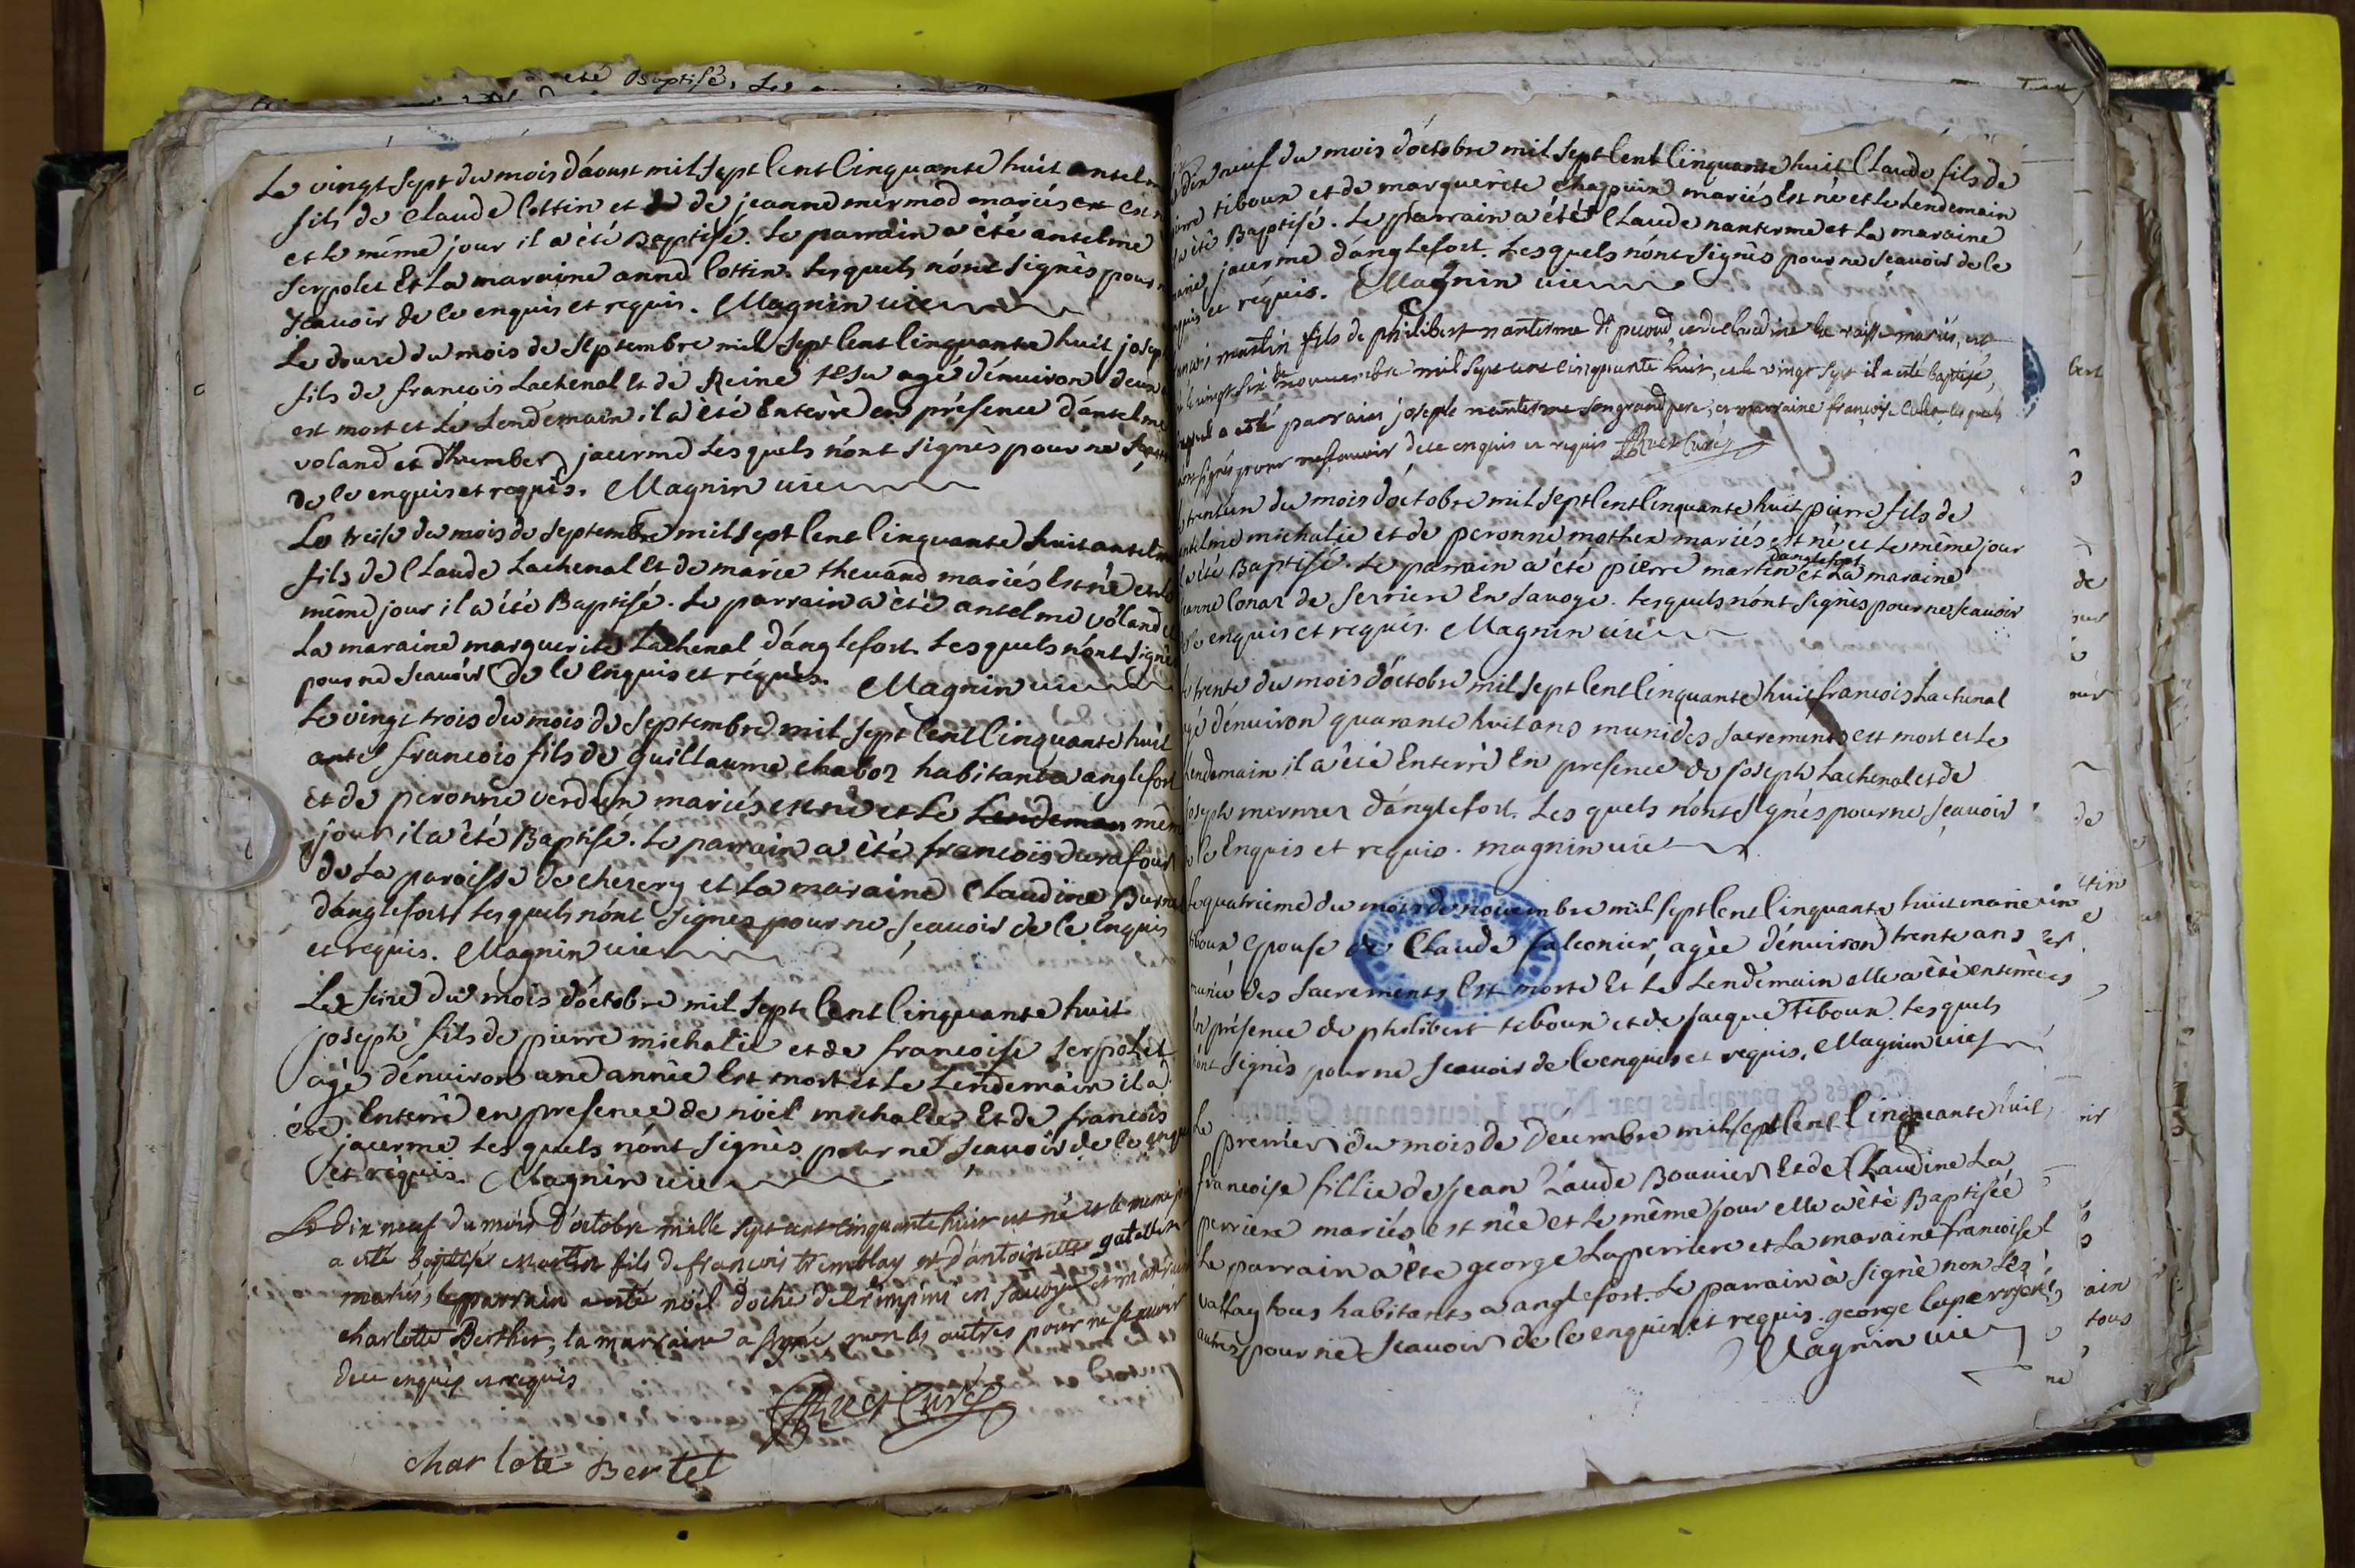 été Baptisé, Les
Le vingt sept du mois d'aoust mil sept cent cinquante huit antelm
fils de Claude Cottin et de jeanne mermod mariés est
et le même jour il a été Baptisé. Le parrain a été antelme
serpolet Et La maraine anne Cottin. Lesquels n'ont signés pour
sçauoir de ce enquis et requis. Magnin vic
Le douze du mois de Septembre mil sept Cent Cinquante huit josep
fils de françois Lachenal Et de Reine agé d'enuiron deux
est mort et Le Lendemain il a été Enterré en présence d'antelme
voland et d'humber jacerme Lesquels n'ont signés pour ne
de ce enquis et requis. Magnin vic
Le treise du mois de septembre mil sept Cent Cinquante huit antelm
fils de Claude Lachenal Et de marie thevand mariés Est né et le
même jour il a été Baptisé. Le parrain a été antelme voland
La maraine marguerite Lachenal d'anglefort Lesquels n'ont signé
pour ne sçauoir de ce Enquis et réquis. Magnin vic
Le vingt trois du mois de septembre mil sept Cent Cinquante huit
francois fils de guillaume chaboz habitant a anglefort
et de peronne verdun mariés est né et Le Lendemain mêm
jour il a été Baptisé. Le parrain a été francois durafour
de La paroisse de chesery et La maraine Claudine
d'anglefort Lesquels n'ont signés pour ne sçauoir de Ce Enquis
et requis. Magnin vic
Le seize du mois d'octobre mil sept Cent Cinquante huit
joseph fils de pierre michalie et de francoise serpolet
agé d'enuiron une année Est mort et Le Lendemain il a
été Enterré en presence de noel michalie Et de francois
jacerme Lesquels n'ont signés pour ne sçauoir de ce enqui
et requis. Magnin vic
Le dix neuf du mois d'octobre mille sept cent cinquante huit est né et le même
a esté Baptisé martin fils de françois tremblay et d'antoinette
mariés, le parrain a esté noël doche en savoye et marraine
charlotte Berthet, la marraine a signé, non les autres pour ne sçauoir
de ce enquis et requis
Curé
charlote Bertet
dix neuf du mois d'octobre mil sept Cent Cinquante huit Claude fils de
tiboux et de marguerite Chapuin mariés Est né et Le Lendemain
a été Baptisé. Le parrain a été Claude nanterme et La maraine
jacerme d'anglefort. Lesquels n'ont signés pour ne sçauoir de Ce
et réquis. Magnin vic
martin fils de philibert nanterme et de claudine mariés, est
le vingt six de nouembre mil sept cent cinquante huit, et le vingt sept il a esté baptisé,
a esté parrain joseph nanterme son grand pere, et marraine françoise lesquels
signés pour ne sçauoir de ce enquis et requis Curé
trentun du mois d'octobre mil sept Cent Cinquante huit pierre fils de
antelme michalie et de peronne mathex mariés est né et Le même jour
a été Baptisé. Le parrain a été pierre martin d'anglefort et La maraine
jeanne Conaz de serriere En savoye. Lesquels n'ont signés pour ne sçauoir
de Ce enquis et requis. Magnin vic
trente du mois d'octobre mil sept Cent Cinquante huit francois Lachenal
agé d'énuiron quarante huit ans muni des sacrements est mort et Le
Lendemain il a été Enterré En presence de joseph Lachenal et de
joseph mermet d'anglefort. Lesquels n'ont signés pour ne sçauoir
de Ce Enquis et requis. magnin vic
Le quatrieme du mois de nouembre mil sept Cent Cinquante huit marie
tiboux Epouse de Claude falconier, agée d'énuiron trente ans
munie des sacrements Est morte Et Le Lendemain elle a été enterrée
En présence de philibert tiboux et de jacque Tiboux. Lesquels
n'ont signés pour ne sçauoir de Ce enquis et requis. Magnin vic
Cotés & paraphés par Nous Lieutenant Général
Le premier du mois de Décembre mil sept Cent Cinquante huit
francoise fillie de jean Claude Bouuier Et de Claudine La
perriere mariés est née et Le même jour elle a été Baptisée
Le parrain a été george Laperriere et La maraine francoise
vassay tous habitants a anglefort. Le parrain a signé non Les
autres pour ne sçauoir de Ce enquis et requis. george laperriere
Magnin vic